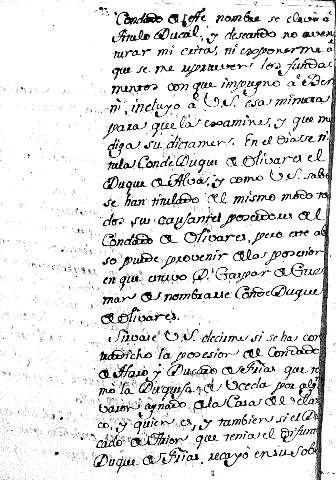 Condado de esse nombre se elevó á
titulo Ducál, y deseando no aven
turar mi cita, ni exponerme á
que se me reprueven los funda
mentos con que impugno á Ber
ni, incluyo á V.S. esa minuta
para que la examine, y que me
diga su dictamen. En el dia se ti
tula Conde Duque de Olivares el
Duque de Alva, y como V.S. sabe
se han titulado del mismo modo to
dos sus causantes poseedores del
Condado de Olivares, pero este ab
so puede provenir de las posesion
en que estuvo Dn. Gaspar de Guz
man de nombrarse Conde Duque
de Olivares.
Sirvase V.S. decirme si se ha con
tradicho la posesion del Condado
de Haro y Ducado de Frias que to
mo la Duquesa de Uceda por al
varon agnado de la Casa de Velas
co, y quien es, y tambien si el Du
cado de Frias que tenia el difunto
Duque de Frias, recayó en su Sob